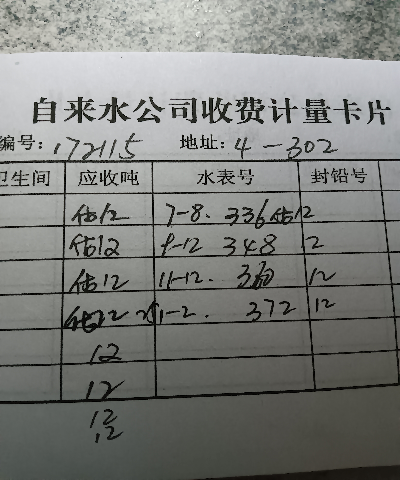 自来水公司收费计量卡片
编号: 172115 地址: 4-302
卫生间 应收吨 水表号 封铅号
估12 7-8. 336 估12
估12 9-12 348 12
估12 11-12. 360 12
估12 1-2. 372 12
12
12
12
12